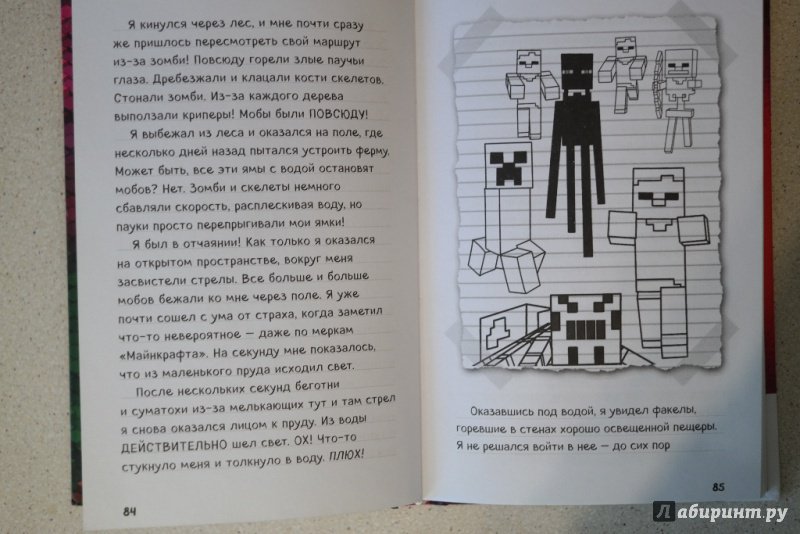 Я кинулся через лес, и мне почти сразу
же пришлось пересмотреть свой маршрут
из-за зомби! Повсюду горели злые паучьи
глаза. Дребезжали и клацали кости скелетов.
Стонали зомби. Из-за каждого дерева
выползали криперы! Мобы были ПОВСЮДУ!
Я выбежал из леса и оказался на поле, где
несколько дней назад пытался устроить ферму.
Может быть, все эти ямы с водой остановят
мобов? Нет. Зомби и скелеты немного
сбавляли скорость, расплескивая воду, но
пауки просто перепрыгивали мои ямки!
Я был в отчаянии! Как только я оказался
на открытом пространстве, вокруг меня
засвистели стрелы. Все больше и больше
мобов бежали ко мне через поле. Я уже
почти сошел с ума от страха, когда заметил
что-то невероятное — даже по меркам
«Майнкрафта». На секунду мне показалось,
что из маленького пруда исходил свет.
После нескольких секунд беготни
и суматохи из-за мелькающих тут и там стрел
я снова оказался лицом к пруду. Из воды
ДЕЙСТВИТЕЛЬНО шел свет. ОХ! Что-то
стукнуло меня и толкнуло в воду. ПЛЮХ!
84
Оказавшись под водой, я увидел факелы,
горевшие в стенах хорошо освещенной пещеры.
Я не решался войти в нее — до сих пор
85
Лабиринт.ру